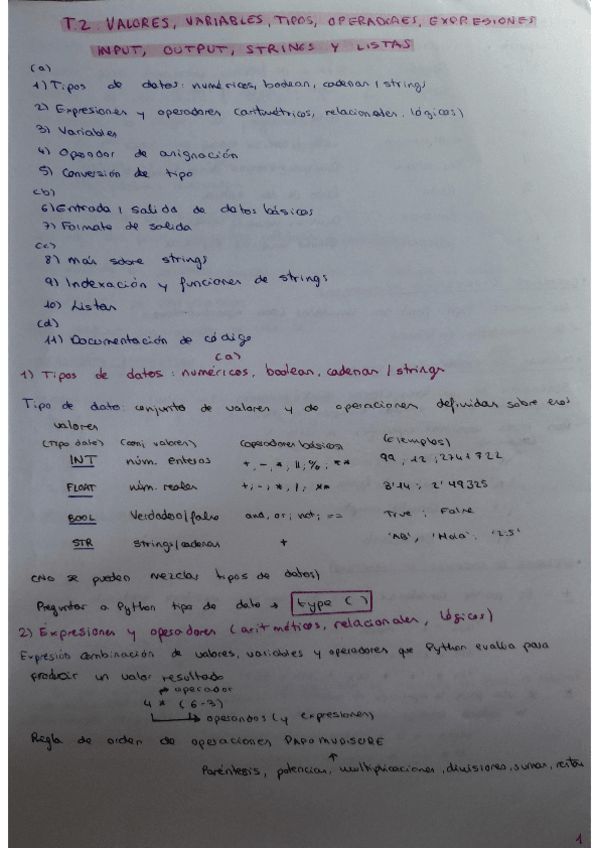 T.2 VALORES, VARIABLES, TIPOS, OPERADORES, EXPRESIONES
INPUT, OUTPUT, STRINGS Y LISTAS
(a)
1) Tipos de datos: numéricos, boolean, cadenas / strings
2) Expresiones y operadores (aritméticos, relacionales, lógicos)
3) Variables
4) Operador de asignación
5) Conversión de tipo
(b)
6) Entrada / salida de datos básicos
7) Formato de salida
(c)
8) Más sobre strings
9) Indexación y funciones de strings
10) Listas
(d)
11) Documentación de código
(a)
1) Tipos de datos: numéricos, boolean, cadenas / strings
Tipo de dato: conjunto de valores y de operaciones definidas sobre esos
valores
(Tipo dato) (conj valores) (operadores básicos) (ejemplos)
INT núm. enteros +, -, *, //, %, ** 99, 12, 2741722
FLOAT núm. reales +, -, *, /, ** 3'14; 2'49325
BOOL Verdadero/falso and, or; not; == True; False
STR strings/cadenas + 'AB', 'Hola'; '2.5'
(No se pueden mezclar tipos de datos)
Preguntar a Python tipo de dato → type ( )
2) Expresiones y operadores (aritméticos, relacionales, lógicos)
Expresión combinación de valores, variables y operadores que Python evalúa para
producir un valor resultado
→ operador
4 * (6-3)
→ operandos (y expresiones)
Regla de orden de operaciones PAPOMUDISURE
↑
Paréntesis, potencias, multiplicaciones, divisiones, sumas, restas
1